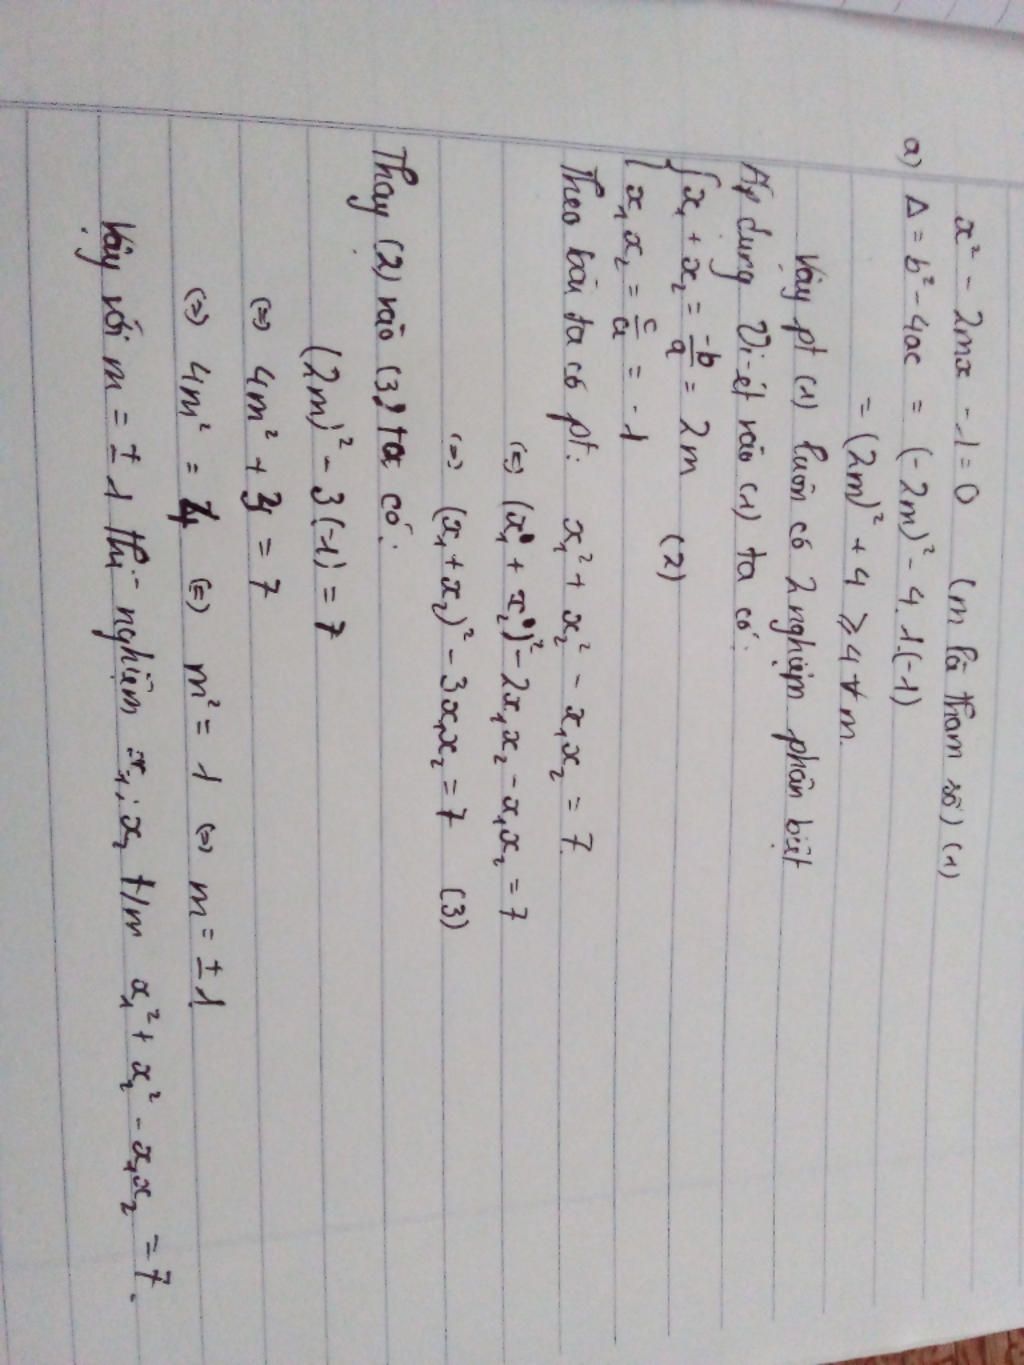 x² - 2mx - 1 = 0 (m là tham số) (1)
a) Δ = b² - 4ac = (-2m)² - 4.1.(-1)
= (2m)² + 4 ≥ 4 ∀ m.
Vậy pt (1) luôn có 2 nghiệm phân biệt
Áp dụng Vi-ét vào (1) ta có:
{ x₁ + x₂ = -b/a = 2m
{ x₁x₂ = c/a = -1 (2)
Theo bài ta có pt: x₁² + x₂² - x₁x₂ = 7.
(=) (x₁ + x₂)² - 2x₁x₂ - x₁x₂ = 7
(=) (x₁ + x₂)² - 3x₁x₂ = 7 (3)
Thay (2) vào (3) ta có:
(2m)² - 3(-1) = 7
(=) 4m² + 3 = 7
(=) 4m² = 4 (=) m² = 1 (=) m = ±1
Vậy với m = ±1 thì nghiệm x₁; x₂ t/m x₁² + x₂² - x₁x₂ = 7.